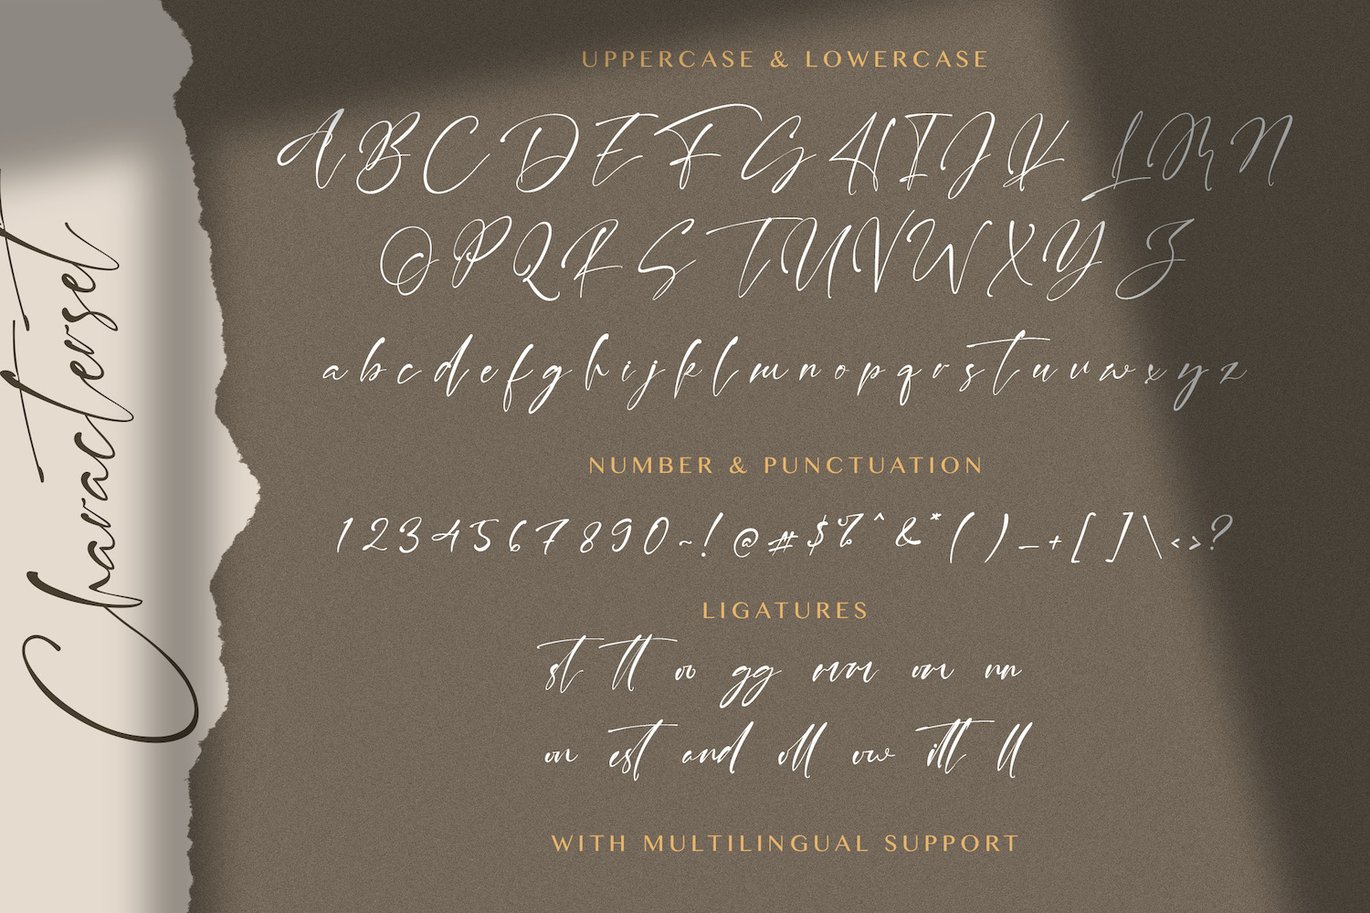 Characterset
UPPERCASE & LOWERCASE
A B C D E F G H I J K L M N
O P Q R S T U V W X Y Z
a b c d e f g h i j k l m n o p q r s t u v w x y z
NUMBER & PUNCTUATION
1 2 3 4 5 6 7 8 9 0 ~ ! @ # $ % ^ & * ( ) _ + [ ] \ < > ?
LIGATURES
st tt oo gg mm om nn
on est and oll ow itt ll
WITH MULTILINGUAL SUPPORT